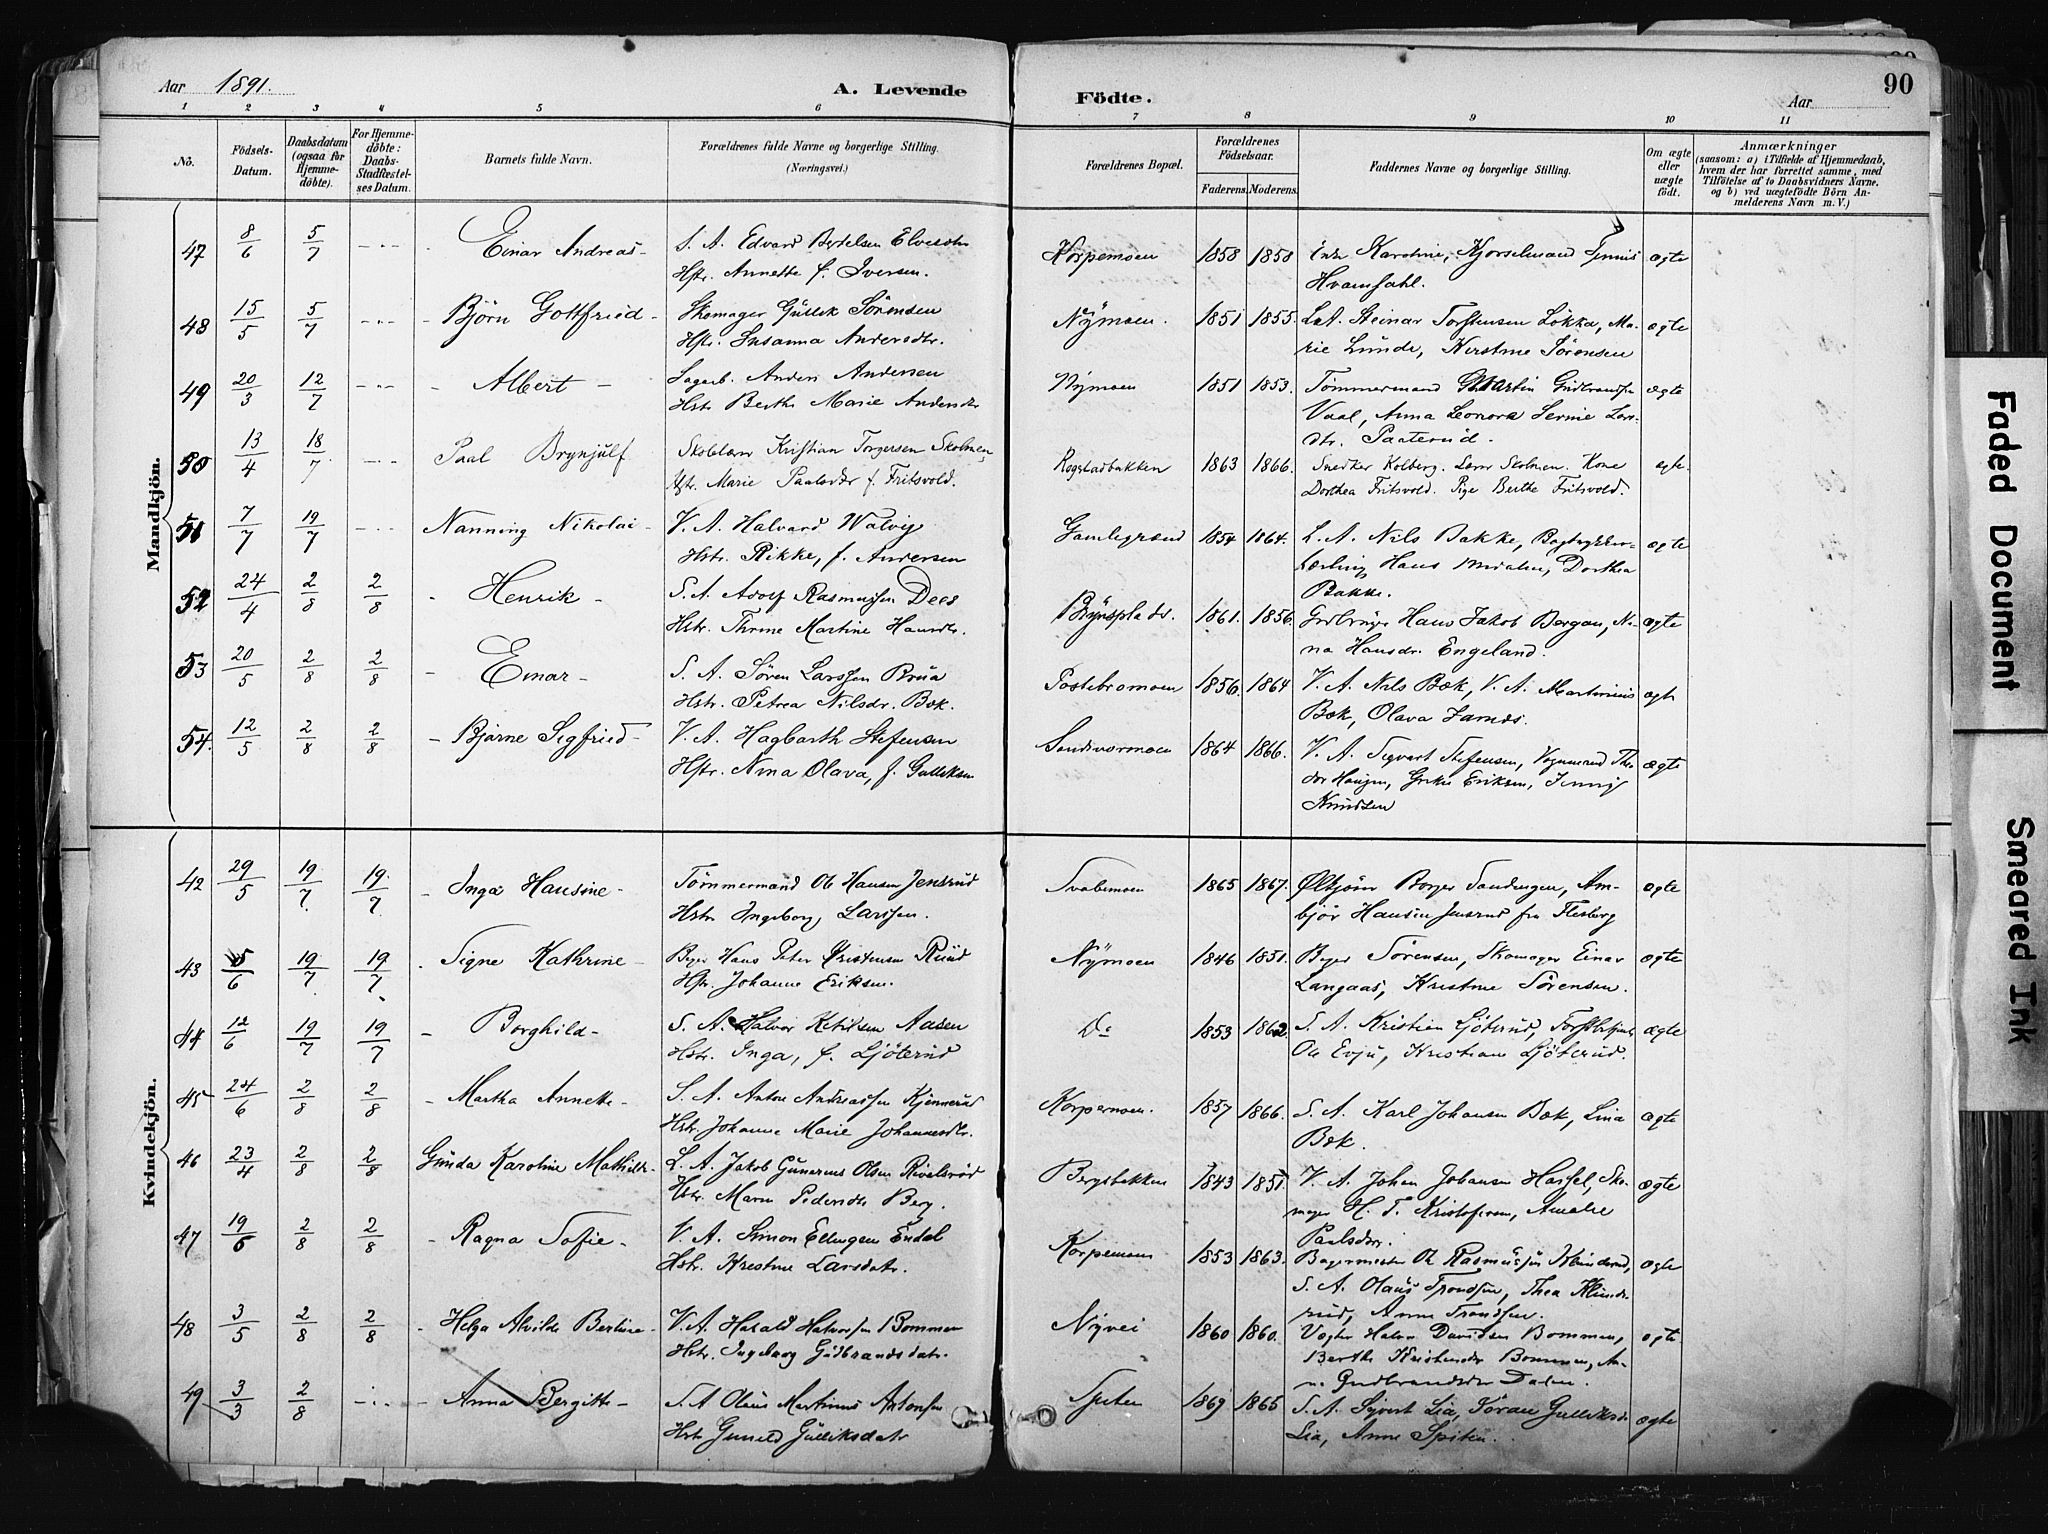 Aar 1891.
A. Levende
Födte.
Aar
90
1 2 3 4 5 6 7 8 9 10 11
No.
Födsels-
Datum.
Daabsdatum
(ogsaa for
Hjemme-
döbte).
For Hjemme-
döbte:
Daabs-
Stadfæstel-
ses Datum.
Barnets fulde Navn.
Forældrenes fulde Navne og borgerlige Stilling.
(Næringsvei.)
Forældrenes Bopæl.
Forældrenes
Födselsaar.
Faderens. Moderens.
Faddernes Navne og borgerlige Stilling.
Om ægte
eller
uægte
födt.
Anmærkninger
(saasom: a) i Tilfælde af Hjemmedaab,
hvem der har forrettet samme, med
Tilföielse af to Daabsvidners Navne.
og b) ved uægtefödte Börn An-
melderens Navn m. V.)
Mandkjön.
47 8/6 5/7 Einar Andreas S. A. Edvard Bertelsen
Hstr. Annette f. Iversen.
Korpemoen 1858 1858 Enke Karoline, ægte
48 15/5 5/7 Björn Gottfried Skomager Gullik Sörensen
Hstr. Susanna Andersdtr.
Nymoen. 1851 1855. L. A. Steinar Torstensen Lökka, Ma-
rie Lunde, Kirstine Sörensen ægte
49 20/3 12/7 Albert Anders Andersen
Hstr. Berthe Marie Andersdtr
Nymoen 1851 1853. Tömmermand Martin Gudbrandsen
Vaal, Anna Leonora
dtr. Paaterud. ægte
50 13/4 18/7 Paal Brynjulf Skolelærer Kristian Torgersen Skolmen,
Hstr. Marie Paalsdtr f. Fritsvold.
Rogstadbakken 1863 1866. Snedker Kolberg. Lærer Skolmen. Kone
Dorthea Fritsvold. Pige Berthe Fritsvold. ægte.
51 7/7 19/7 Nanning Nikolai V. A. Halvard
Hstr. Rikke, f. Andersen
Gamlegrænd 1854 1864. L. A. Nils Bakke,
Hans Dorthea
Bakke. ægte
52 24/4 2/8 2/8 Henrik S. A. Adolf Rasmussen Dees
Hstr. Thrine Martine Hansdtr.
1861. 1856. Hans Jakob Bergan, Ni-
na Hansdr. Engeland. ægte
53 20/5 2/8 2/8 Einar S. A. Sören Larssen Brua
Hstr. Petrea Nilsdr. Bæk.
Postebromoen 1856. 1864 V. A. Nils Bæk, V. A. Martinius
Bæk, Olava ægte
54. 12/5 2/8 2/8 Bjarne Sigfried V. A. Hagbarth Stefensen
Hstr. Nina Olava, f. Gulliksen
1864 1866. V. A. Sigvart Stefensen, Vognmand Theo-
dor Haugen, Grethe Eriksen, Jenny
Knudsen ægte
Kvindekjön.
42 29/5 19/7 19/7 Inga Hansine Tömmermand Ole Hansen Jensrud
Hstr Ingeborg Larssen.
Svabemoen 1865 1867. Borger Am-
björ Hansen Jensrud fra Flesberg ægte
43 5/6 19/7 19/7 Signe Kathrine Hans Peter Kristensen Ruud
Hstr. Johanne Eriksen.
Nymoen 1846 1851. Sörensen, Skomager Einar
Langaas, Kristine Sörensen. ægte
44 12/6 19/7 19/7 Borghild S. A. Halvor Ketilsen Aasen
Hstr. Inga, f. Ljöterud
Do 1853 1862. S. A. Kristian Ljöterud,
Ole Evju, Kristiane Ljöterud. ægte
45 24/6 2/8 2/8 Martha Annette S. A. Anton Andreassen Kjennerud
Hstr. Johanne Marie Johannesdtr.
Korpemoen. 1857 1866. S. A. Karl Johansen Bæk, Lina
Bæk. ægte
46 23/4 2/8 2/8 Gunda Karoline Mathilde L. A. Jakob Gunerius Olsen
Hstr. Maren Pedersdtr Berg.
Bergsbakken 1843 1851. V. A. Johan Johansen Hassel, Sko-
mager H. T. Kristofersen, Amalie
Paulsdtr. ægte
47 19/6 2/8 2/8 Ragna Sofie V. A. Simon Ellingsen Endal
Hstr. Kristine Larsdatr.
Korpemoen 1853 1863. Bagermester Ole Rasmussen
S. A. Olaus Trondsen, Thea
rud, Anne Trondsen. ægte
48 3/5 2/8 2/8 Helga Alvilde Bertine V. A. Harald Halvorsen Bommen
Hstr. Ingeborg Gudbrandsdatr.
Nyvei 1860 1860. Vægter Halvor Davidsen Bommen,
Berthe Kristensdtr Bommen, An-
ne Gudbrandsdtr Dalen. ægte
49 3/3 2/8 Anna Bergitte S. A. Olaus Martinius Antonsen
Hstr Gunild Gulliksdatr
Spiten 1869 1865 S. A. Syvert Lia, Söran Gulliksdr
Lia, Anne Spiten. ægte
Faded Document
Smeared Ink